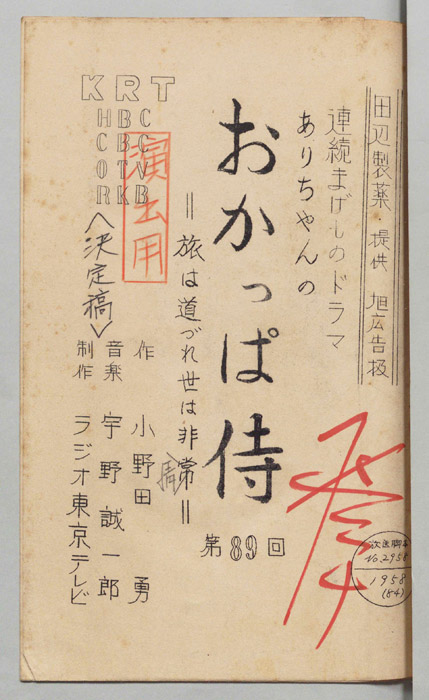 田辺製薬・提供 旭広告扱
連続まげものドラマ
ありちゃんの
おかっぱ侍
第89回
＝旅は道づれ世は非常＝
演出用
KRT
HBC
CBC
OTV
RKB
〈決定稿〉
作 小野田 勇
音楽 宇野誠一郎
制作 ラジオ東京テレビ
No.2958
1958
(84)